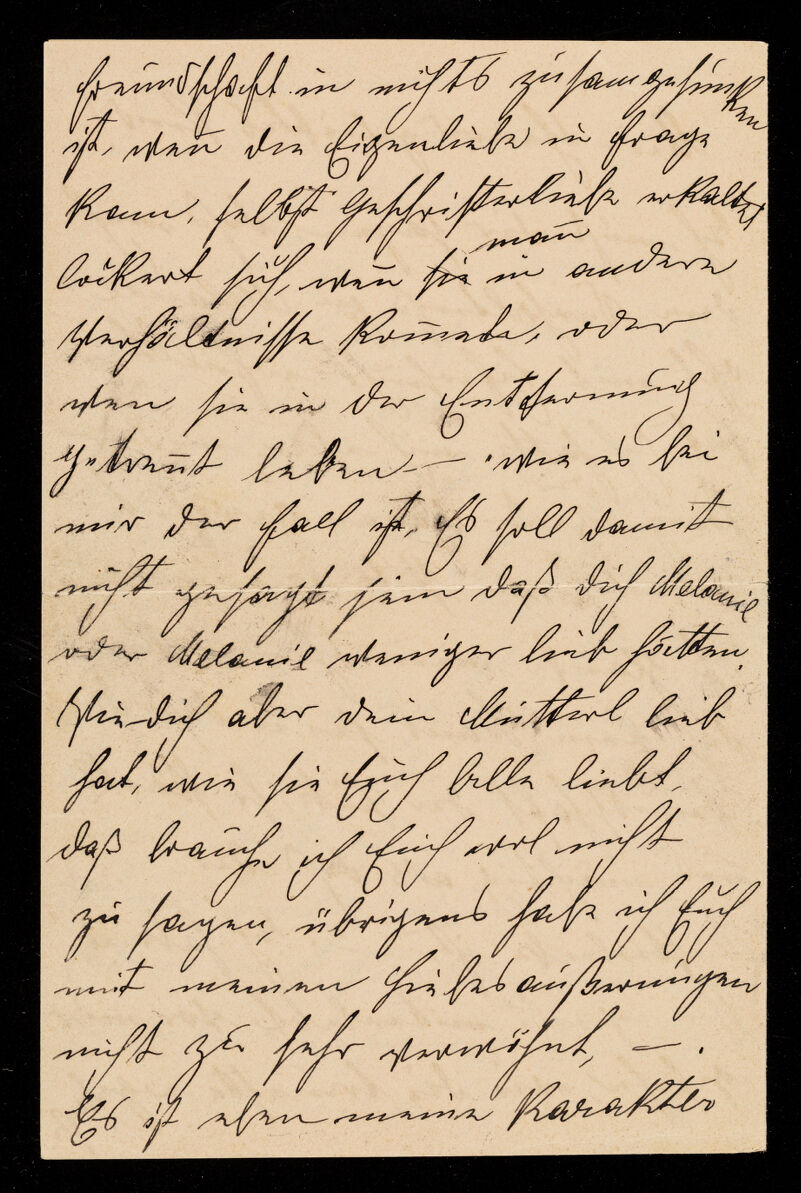 freundschaft in nichts zusamgesunken
ist, weñ die Eigenliebe in frage
kam, selbst Geschwisterliebe erkaltet
lockert sich, weñ man in andere
Verhältnisse kom̄ete, oder
wen sie in der Entfernung
getreñt leben — wie es bei
mir der fall ist, Es soll damit
nicht gesagt sein daß dich Melanie
oder Melanie weniger lieb hätten.
Wie dich aber dein Mütterl lieb
hat, wie sie Euch Alle liebt,
daß brauche ich Euch wol nicht
zu sagen, übrigens habe ich Euch
mit meinen Liebesaußerungen
nicht zu sehr verwöhnt, — .
Es ist eben meine Karakter